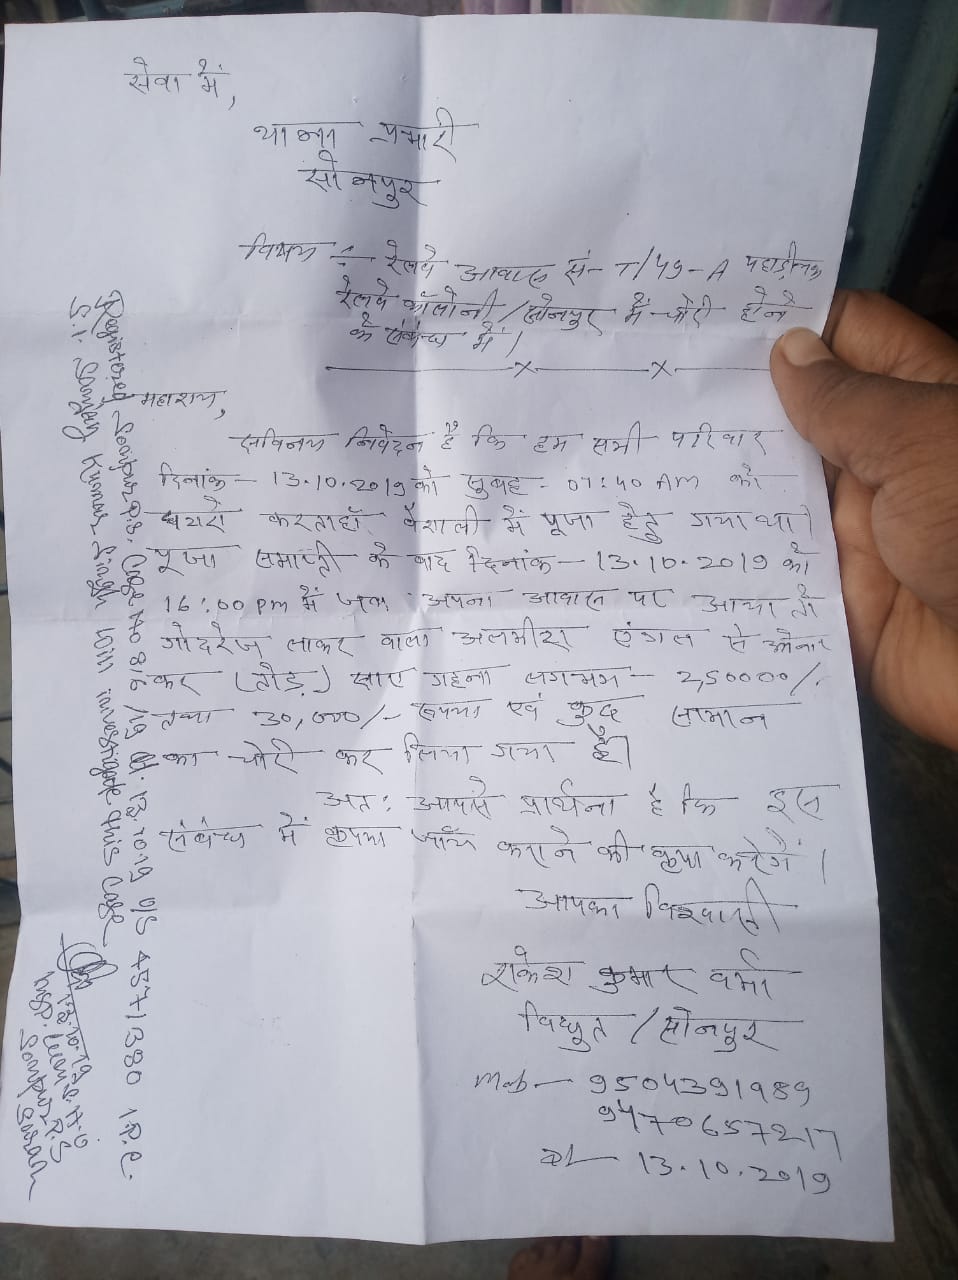 सेवा में,
थाना प्रभारी
सोनपुर
विषय :- रेलवे आवास सं- T/49-A पहाड़ीचक
रेलवे कॉलोनी/सोनपुर में चोरी होने
के संबंध में।
महाशय,
सविनय निवेदन है कि हम सभी परिवार
दिनांक- 13.10.2019 को सुबह- 07:40 AM को
करताहाँ वैशाली में पूजा हेतु गया था।
पूजा समाप्ती के बाद दिनांक- 13.10.2019 को
16:00 pm में जब अपना आवास पर आया तो
गोदरेज लाकर वाला अलमीरा एंगल से
कर (तोड़) गहना लगभग- 2,50000/-
तथा 30,000/- रूपया एवं कुछ सामान
का चोरी कर लिया गया है।
अत: आपसे प्रार्थना है कि इस
संबंध में कृपया जाँच कराने की कृपा करेगें।
आपका विश्वासी
राकेश कुमार वर्मा
विद्युत / सोनपुर
Mob- 9504391989
9470657217
dt- 13.10.2019
Registered Sonpur P.S. Case No 816/19 dt. 13.10.19 u/s 457/380 I.P.C.
S.I. Sanjay Kumar Singh will investigate this case
13.10.19
Insp. cum S.H.O
Sonpur P.S
Saran